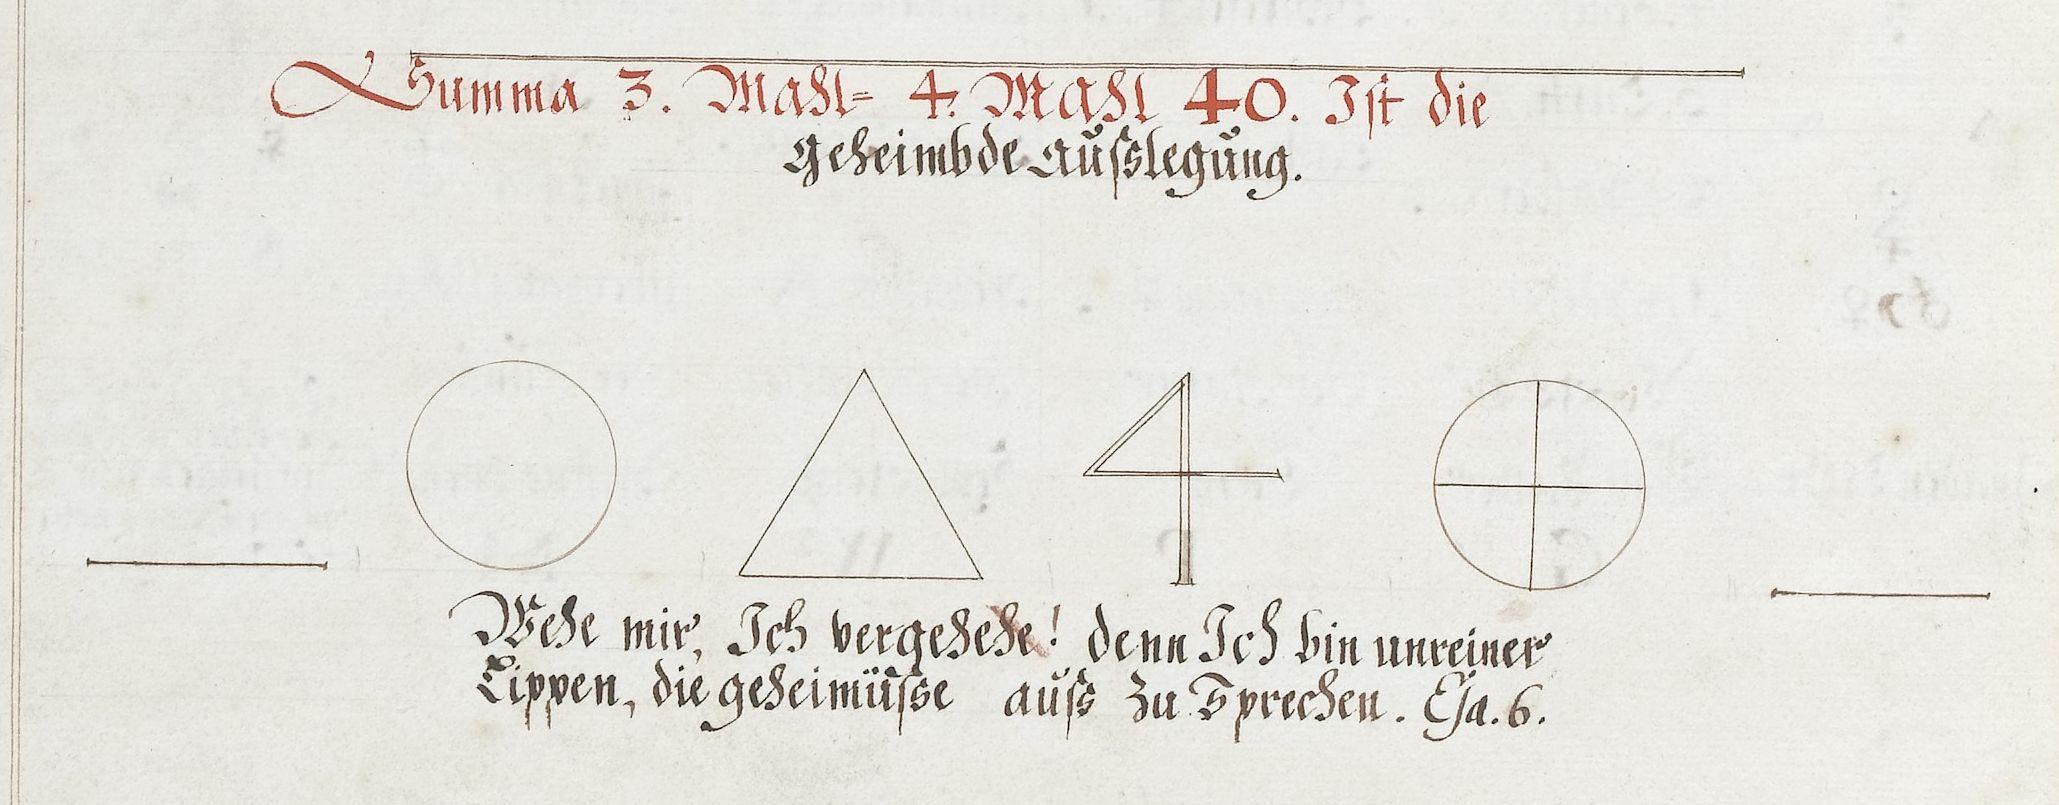 Summa 3. Mahl= 4. Mahl 40. Ist die
geheimbde außlegung.
4
Wehe mir, Ich vergehehe! denn Ich bin unreiner
Lippen, die geheimüsse auss zu Sprechen. Esa. 6.